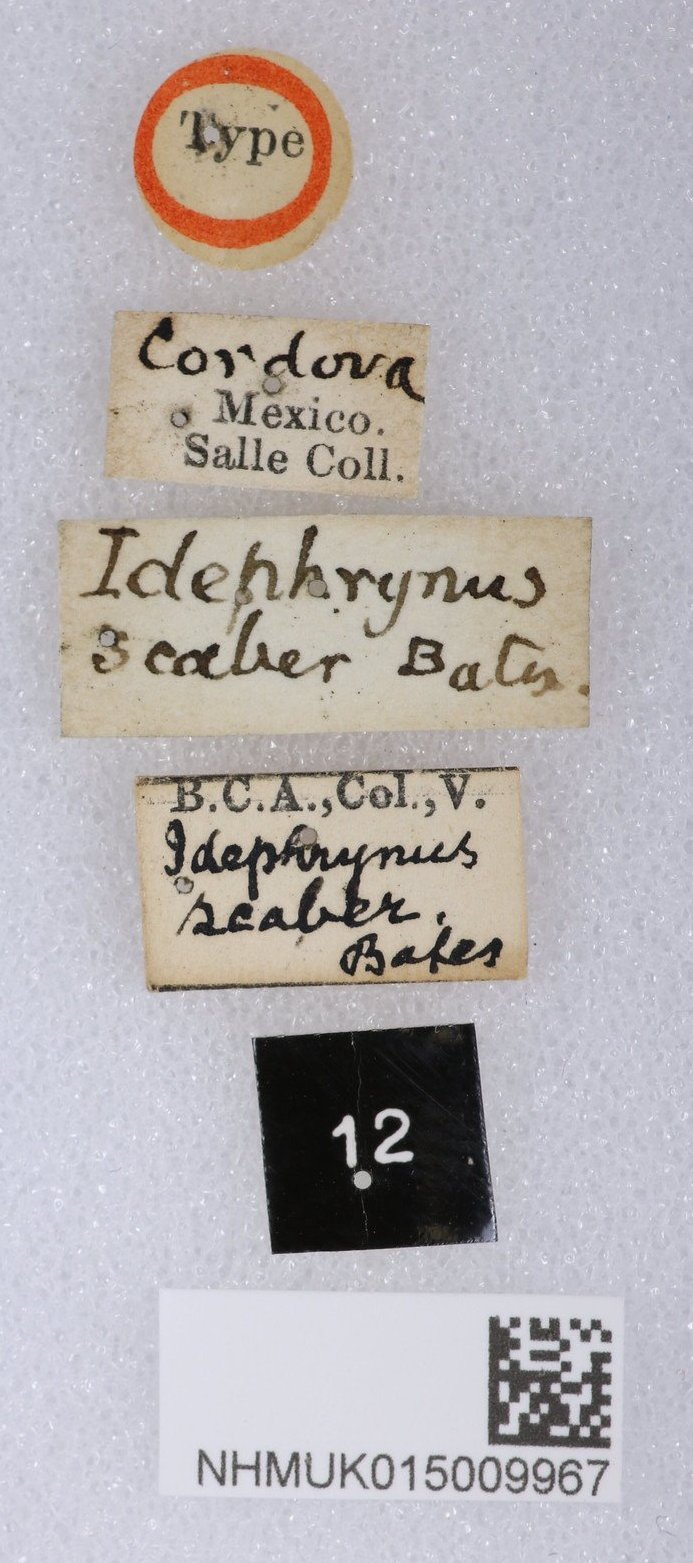 Type
Cordova
Mexico.
Salle Coll.
Idephrynus
scaber Bates.
B.C.A.,Col.,V.
Idephrynus
scaber.
Bates
12
NHMUK015009967